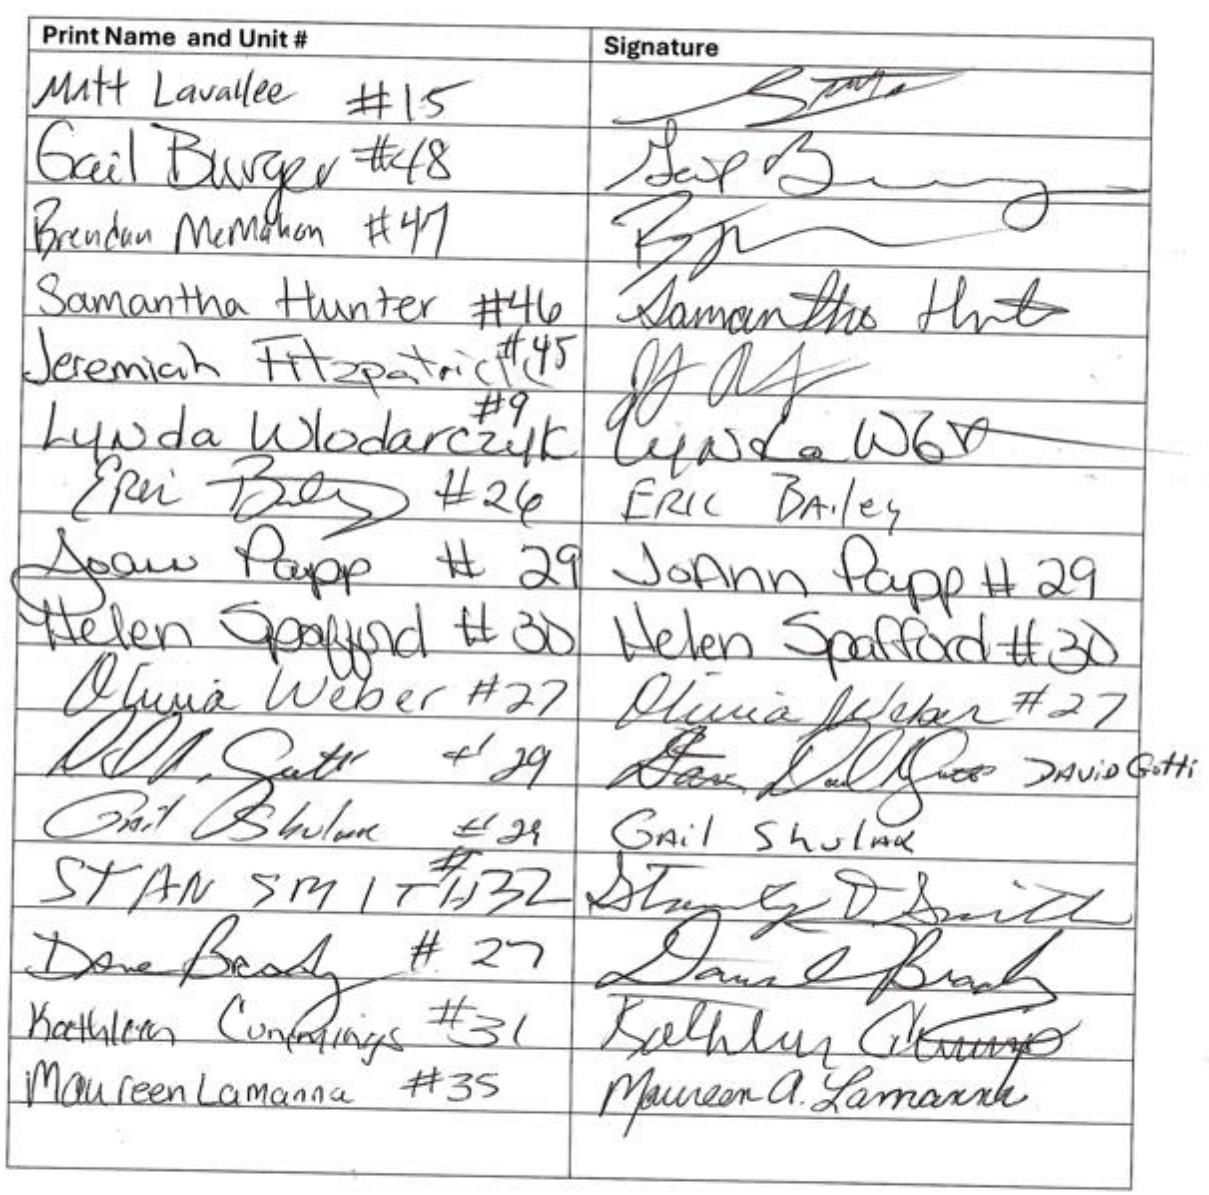 Print Name and Unit # Signature
Matt Lavallee #15
Gail Burger #48 Gail B
Brendan McMahon #47
Samantha Hunter #46 Samantha Hunt
Jeremiah Fitzpatrick #45
Lynda Wlodarczyk #9 Lynda
Eric Bailey #26 ERIC BAiley
Joann Papp # 29 JoAnn Papp # 29
Helen Spafford # 30 Helen Spafford # 30
Olivia Weber #27 Olivia Weber #27
Gotti # 29 DAViD Gotti
Gail Shulak # 29 GAil ShulAK
STAN SMITH #32 Stanley D Smith
Dave Brady # 27 Daniel Brady
Kathleen Cummings #31 Kathleen
Maureen Lamanna #35 Maureen A. Lamanna